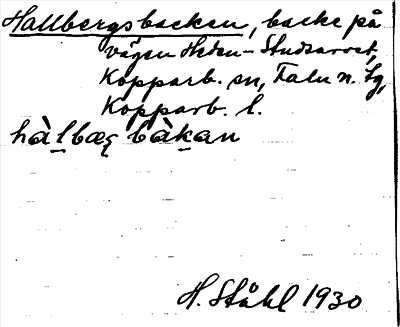 Hallbergsbacken, backe på
vägen Heden - Studsarvet,
Kopparb. sn, Falu n. tg,
Kopparb. l.
hàlbæg bàkan
H. Ståhl 1930